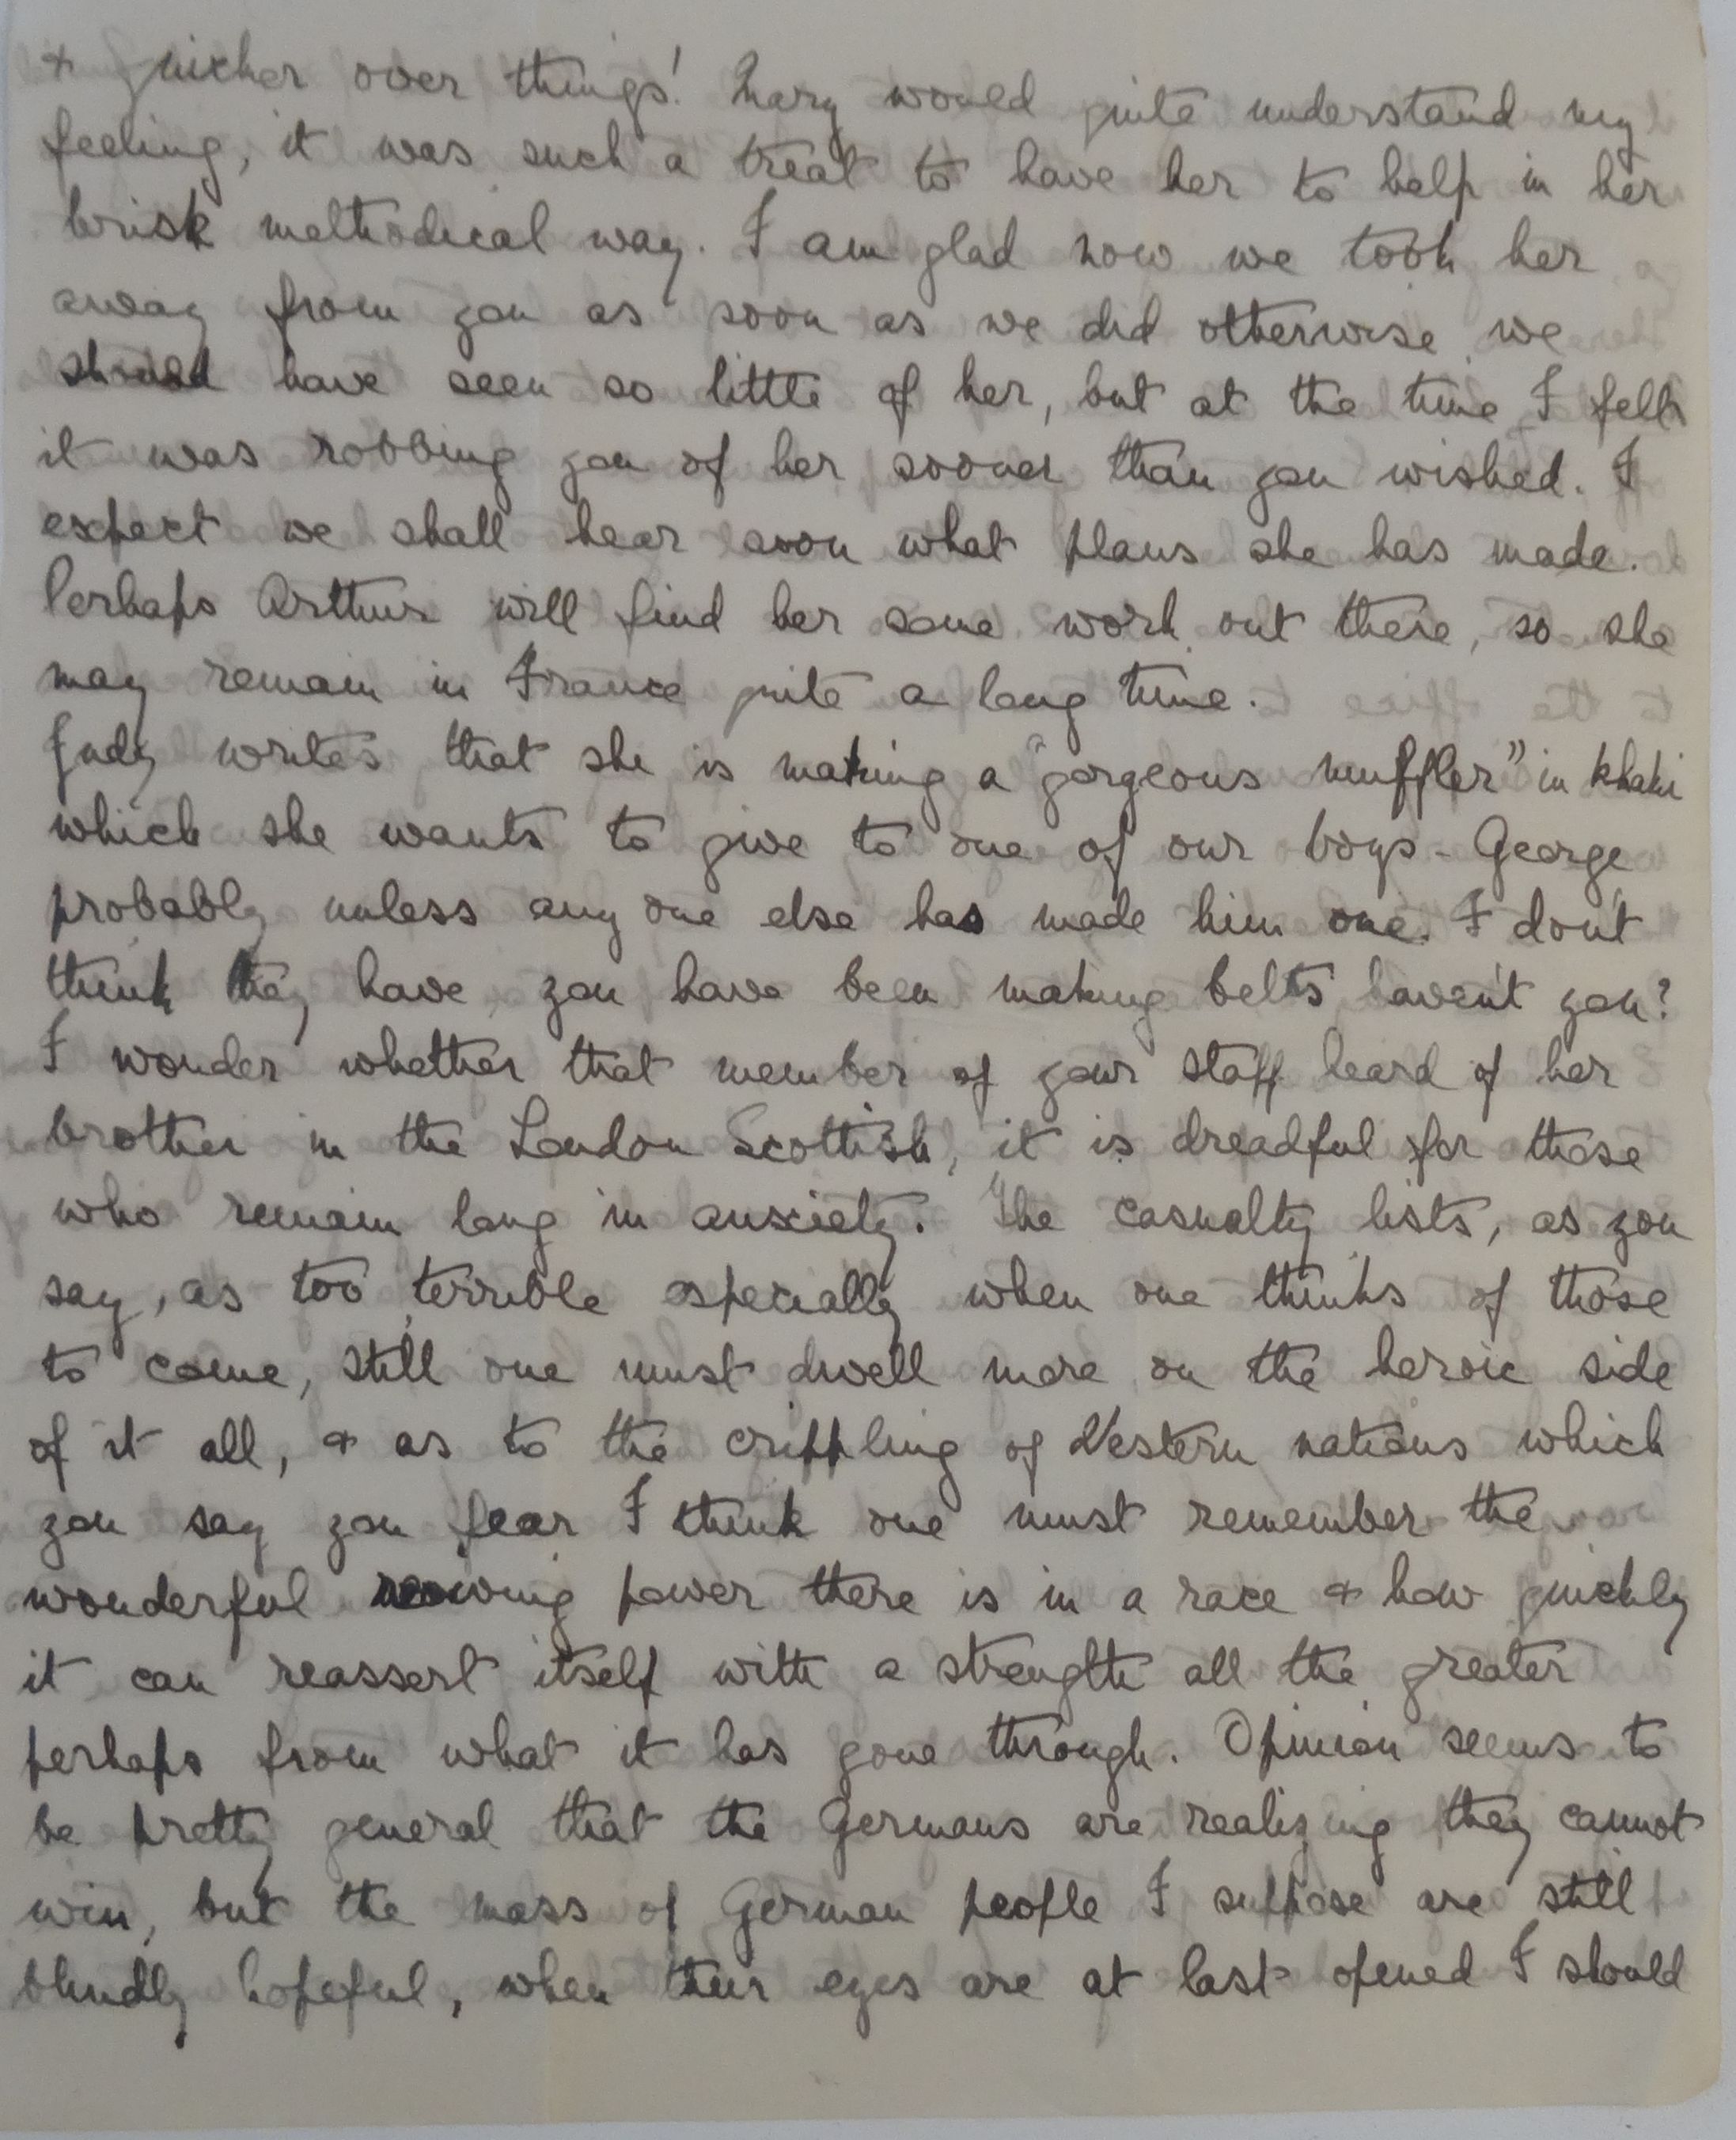 & quicker over things! Mary would quite understand my
feeling, it was such a treat to have her to help in her
brisk methodical way. I am glad now we took her
away from you as soon as we did otherwise we
should have seen so little of her, but at the time I felt
it was robbing you of her sooner than you wished. I
expect we shall hear soon what plans she has made.
Perhaps Arthur will find her some work out there, so she
may remain in France quite a long time.
Judy writes that she is making a "gorgeous muffler" in khaki
which she wants to give to one of our boys - George
probably unless any one else has made him one. I don't
think they have, you have been making belts haven't you?
I wonder whether that member of your staff heard of her
brother in the London Scottish, it is dreadful for those
who remain long in anxiety. The casualty lists, as you
say, as too terrible especially when one thinks of those
to come, still one must dwell more on the heroic side
of it all, & as to the crippling of Western nations which
you say you fear I think one must remember the
wonderful power there is in a race & how quickly
it can reassert itself with a strength all the greater
perhaps from what it has gone through. Opinion seems to
be pretty general that the Germans are realizing they cannot
win, but the mass of German people I suppose are still
blindly hopeful, when their eyes are at last opened I should